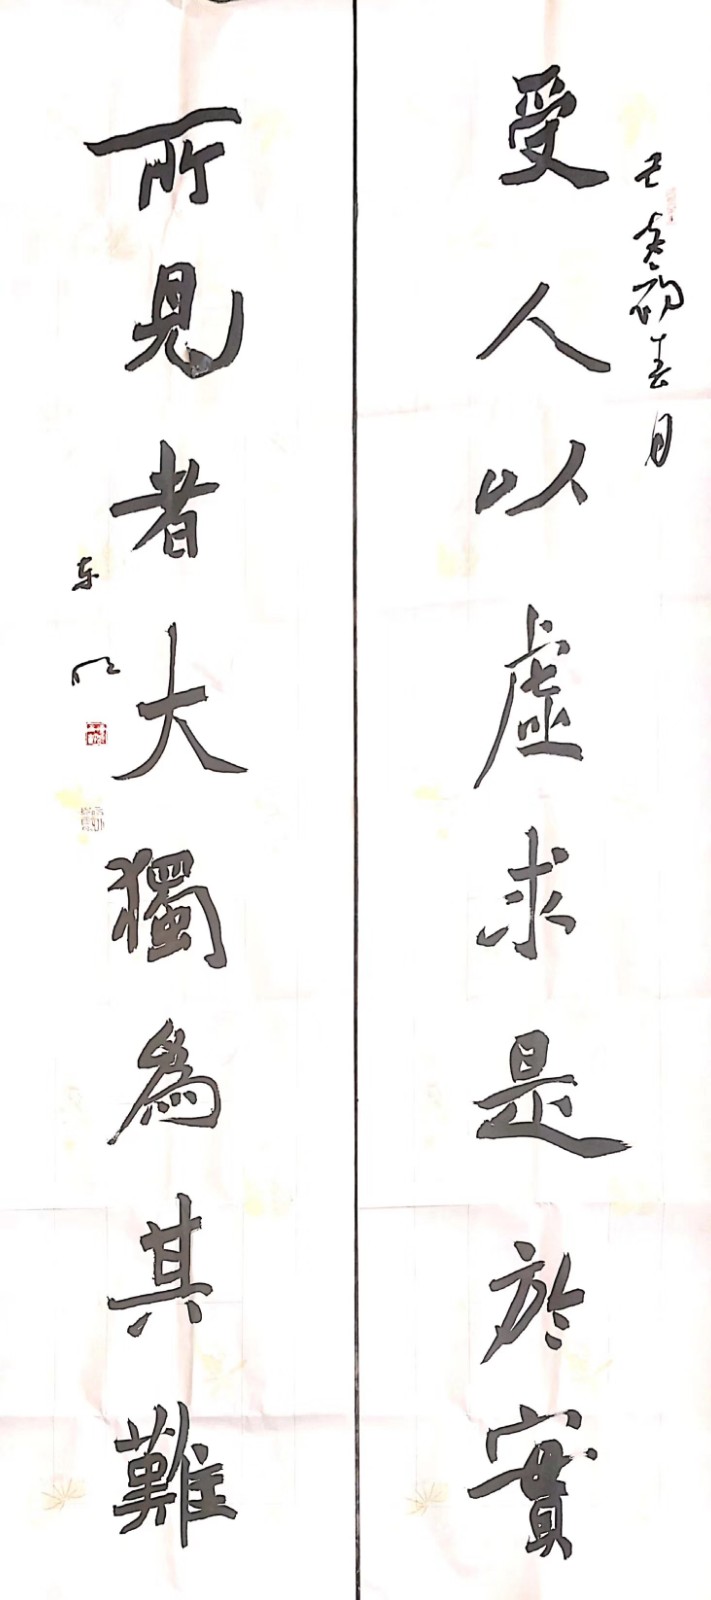 受人以虛求是於實
春日
所見者大獨為其難
东明